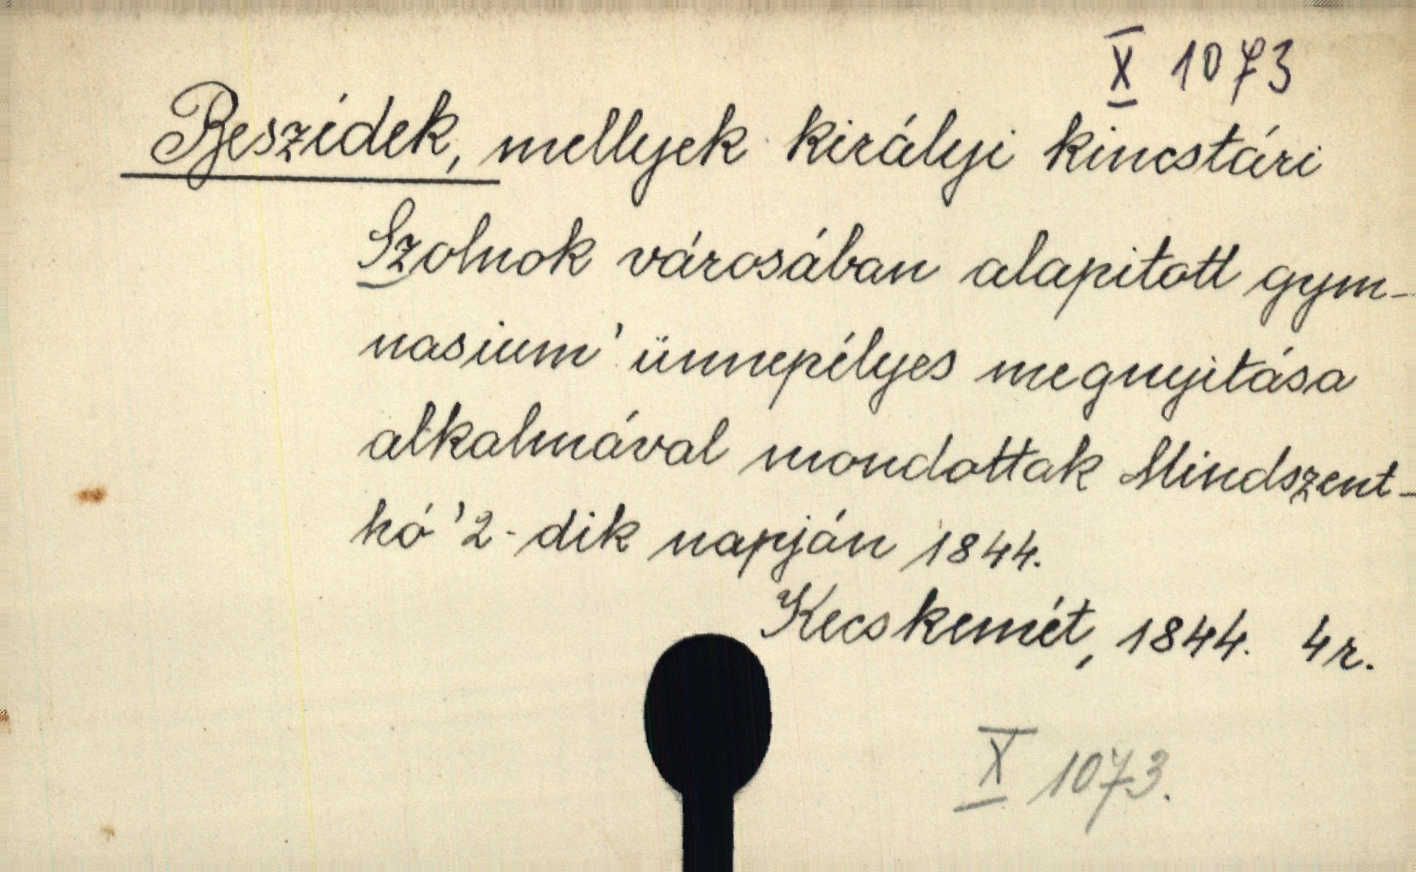 X 1073
Beszédek, mellyek királyi kincstári
Szolnok városában alapitott gym-
nasium' ünnepélyes megnyitása
alkalmával mondottak Mindszent-
hó '2-dik napján 1844.
Kecskemét, 1844. 4r.
X 1073.